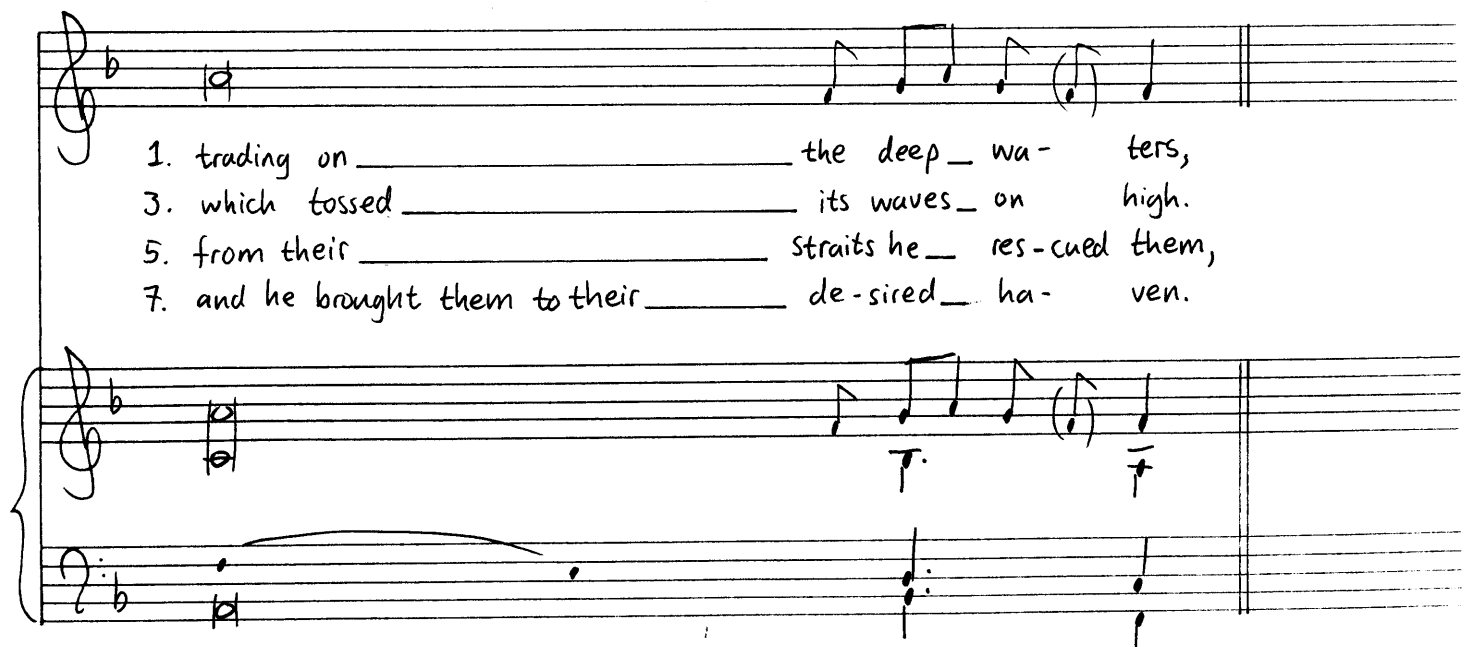 1. trading on ______ the deep_ wa- ters,
3. which tossed ______ its waves_ on high.
5. from their ______ straits he_ res-cued them,
7. and he brought them to their ______ de-sired_ ha- ven.